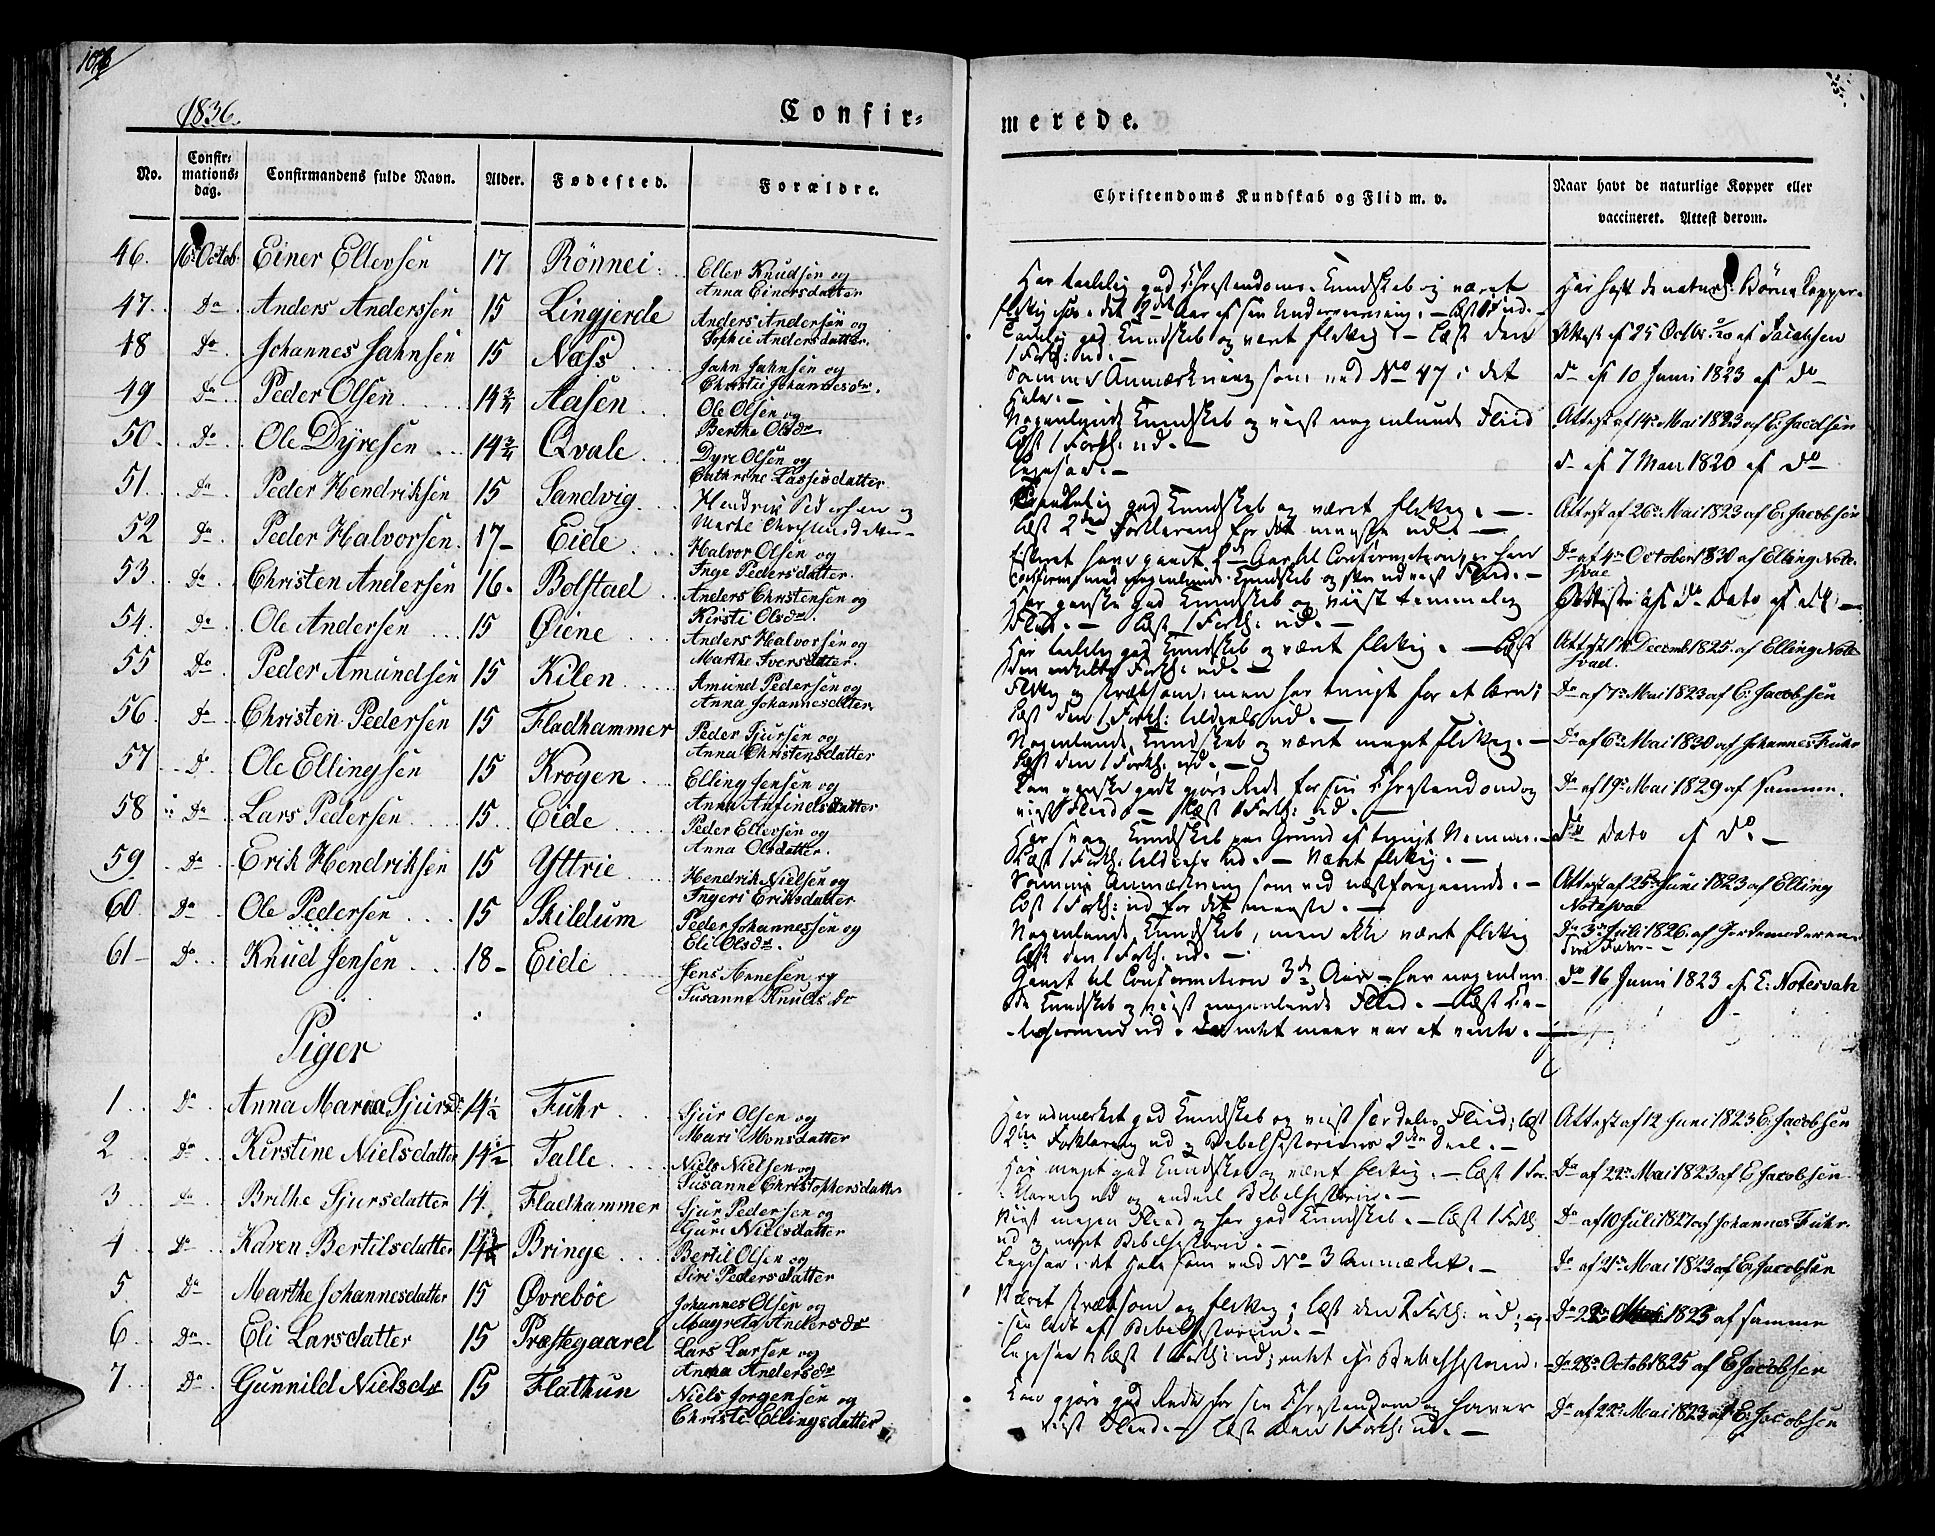 1836.
Confir-
merede.
No.
Confir-
mations-
dag.
Confirmandens fulde Navn.
Alder.
Fødested.
Forældre.
Christendoms Kundskab og Flid m. v.
Naar havt de naturlige Kopper eller
vaccineret. Attest derom.
46. 16. Octob. Einer Ellevsen 17 Rönnei. Ellev Knudsen og
Anna Einersdatter
47. Do Anders Anderssen 15 Lingjerde Anders Andersen og
Sophie Andersdatter.
48 Do Johannes Jahnsen 15 Næss Jahn Jahnsen og
Christi Johannesdr.
49 Do Peder Olsen 14 3/4 Aasen Ole Olsen og
Berthe Olsdr
50. Do Ole Dyresen 14 3/4 Qvale Dyre Olsen og
Cathrine Lassesdatter
51. Do Peder Hendriksen 15 Sandvig Hendrik Pedersen og
52 Do Peder Halvorsen 17 Eide Halvor Olsen og
Inge Pedersdatter.
53. Do Christen Andersen 16. Bolstad Anders Christensen og
Kirsti Olsdr.
54. Do Ole Andersen 15 Øiene Anders Halvorsen og
Marthe Iversdatter.
55 Do Peder Amundsen 15 Kilen Amund Pedersen og
Anna Johannesdatter
56. Do Christen Pedersen 15 Fladhammer Peder Sjursen og
Anna Christensdatter
57 Do Ole Ellingsen 15 Krogen Elling Jensen og
Anna Anfindsdatter
58 Do Lars Pedersen 15 Eide Peder Ellevsen og
Anna Olsdatter.
59 Do Erik Hendriksen 15 Yttrie Hendrik Nielsen og
Ingeri Eriksdatter
60 Do Ole Pedersen 15 Skildum Peder Johannessen og
Eli Olsdr.
61 Do Knud Jensen 18 Eide Jens Arnesen og
Susanne Knudsdr
Piger
1 Do Anna Maria Sjursdr 14 1/2 Fuhr Sjur Olsen og
Mari Monsdatter
2 Do Kirstine Nielsdatter 14 1/2 Talle Niels Nielsen og
Susanne Christophersdatter
3 Do Brithe Sjursdatter 14 Fladhammer Sjur Pedersen og
Guri Nielsdatter
4 Do Karen Bertilsdatter 14 Bringe Bertil Olsen og
Siri Pedersdatter
5 Do Marthe Johannesdatter 15 Øvrebøe Johannes Olsen og
Magreta Andersdr
6 Do Eli Larsdatter 15 Præstegaard Lars Larsen og
Anna Andersdr
7 Do Gunnild Nielsdr 15 Flathun Niels Jorgensen og
Christi Ellingsdatter
Har temmelig god Christendoms Kundskab og været
Har havt de naturl. Börne Kopper.
Attest af 25 Octbr. 20 af Jacobsen
Samme Anmærkning som ved No 47 i det
Hele.
do af 10 Juni 1823 af do
Nogenlunde Kundskab og viist nogenlunde Fliid
Læst 1 Forkl: ud.
Attest af 14. Mai 1823 af E: Jacobsen
Ligesaa.
do af 7 Marz 1820 af do
Temmelig god Kundskab og været flittig.
Attest af 26. Mai 1823 af E: Jacobsen
Do af 4. October 1830 af Elling Note-
svae
Har ganske god Kundskab og viist temmelig
Flid. Læst 1 Forkl: ud.
Attest af do Dato af do
Har temmelig god Kundskab og været flittig. Læst
den enkelte Forkl: ud.
Decemb 1825. af Elling Note
svae.
Flittig og stræbsom, men har tungt for at lære;
Do af 7. Mai 1823 af E: Jacobsen
Nogenlunde Kundskab og været meget flittig.
Læst den 1 Forkl: ud.
Do af 6. Mai 1830 af Johannes Fuhr
Kan ganske godt gjøre Rede for sin Christendom og
viist Fliid. Læst 1 Forkl: ud.
Do af 19. Mai 1829 af samme.
Har svag Kundskab paa Grund af tungt Nemme.
do Dato af do.
Samme Anmærkning som ved næstforegaaende.
Læst 1 Forkl: ud for det meeste.
Attest af 25. Juni 1823 af Elling
Notesvae
Nogenlunde Kundskab, men ikke været flittig
Læst den 1 Forkl: ud.
Do 3. Juli 1826. af Jordemoderen
Gaaet til Confirmation 3de Aar. Har nogenlun-
de Kundskab og viist nogenlunde Fliid. Læst Ca-
do 16 Juni 1823 af E: Notesvah
intet meer var at vente.
Har udmærket god Kundskab og viist særdeles Fliid; læst
2den Forklaring ud og Bibelhistoriens 2den Deel.
Attest af 12 Juni 1823 E: Jacobsen
Har meget god Kundskab og været flittig. Læst 1 For-
klaring ud og endeel Bibelhistorie.
Do af 22. Mai 1823 af E: Jacobsen
Viist megen Fliid og har god Kundskab. Læst 1 Forkl.
ud og noget Bibelhistorie.
Do af 10 Juli 1827 af Johannes Fuhr.
Ligesaa i det Hele som ved No 3 anmærket.
Do af 21. Mai 1823 af E: Jacobsen
Været stræbsom og flittig; læst den 2 Forkl: ud; og
1823 af samme
Ligesaa læst 1 Forkl: ud; intet af Bibelhistorien.
Do 28. Octob 1825 af E Jacobsen
Kan gjøre god Rede for sin Christendom og haver
viist Fliid. Læst den 1 Forkl: ud.
Do af 22. Mai 1823 af E: Jacobsen